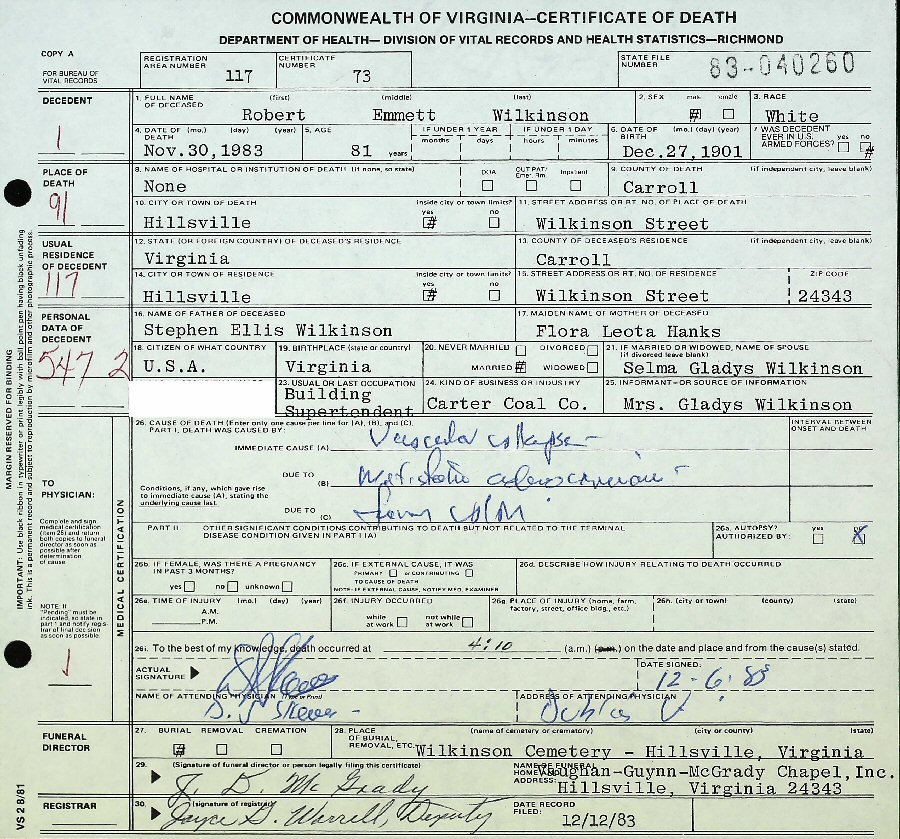 COMMONWEALTH OF VIRGINIA—CERTIFICATE OF DEATH
DEPARTMENT OF HEALTH— DIVISION OF VITAL RECORDS AND HEALTH STATISTICS—RICHMOND
COPY A
FOR BUREAU OF VITAL RECORDS
REGISTRATION AREA NUMBER 117
CERTIFICATE NUMBER 73
STATE FILE NUMBER 83-040260
DECEDENT
1
1. FULL NAME OF DECEASED (first) (middle) (last)
Robert Emmett Wilkinson
2. SEX male female
3. RACE
White
4. DATE OF DEATH (mo.) (day) (year)
Nov.30,1983
5. AGE
81 years
IF UNDER 1 YEAR
months days
IF UNDER 1 DAY
hours minutes
6. DATE OF BIRTH (mo.) (day) (year)
Dec.27,1901
7 WAS DECEDENT EVER IN U.S. ARMED FORCES? yes no
PLACE OF DEATH
91
8. NAME OF HOSPITAL OR INSTITUTION OF DEATH (if none, so state)
None
DOA OUT PAT/ Emer. Rm. Inpatient
9. COUNTY OF DEATH (if independent city, leave blank)
Carroll
10. CITY OR TOWN OF DEATH inside city or town limits? yes no
Hillsville
11. STREET ADDRESS OR RT. NO. OF PLACE OF DEATH
Wilkinson Street
USUAL RESIDENCE OF DECEDENT
117
12. STATE (OR FOREIGN COUNTRY) OF DECEASED'S RESIDENCE
Virginia
13. COUNTY OF DECEASED'S RESIDENCE (if independent city, leave blank)
Carroll
14. CITY OR TOWN OF RESIDENCE inside city or town limits? yes no
Hillsville
15. STREET ADDRESS OR RT. NO. OF RESIDENCE
Wilkinson Street
ZIP CODE
24343
PERSONAL DATA OF DECEDENT
547 2
16. NAME OF FATHER OF DECEASED
Stephen Ellis Wilkinson
17. MAIDEN NAME OF MOTHER OF DECEASED
Flora Leota Hanks
18. CITIZEN OF WHAT COUNTRY
U.S.A.
19. BIRTHPLACE (state or country)
Virginia
20. NEVER MARRIED DIVORCED
MARRIED WIDOWED
21. IF MARRIED OR WIDOWED, NAME OF SPOUSE (if divorced leave blank)
Selma Gladys Wilkinson
23. USUAL OR LAST OCCUPATION
Building
Supertendent
24. KIND OF BUSINESS OR INDUSTRY
Carter Coal Co.
25. INFORMANT—OR SOURCE OF INFORMATION
Mrs. Gladys Wilkinson
MARGIN RESERVED FOR BINDING
IMPORTANT: Use black ribbon in typewriter or print legibly with ball point pen having black unfading
ink. This is a permanent record and subject to reproduction by microfilm and other photographic process.
VS 2 8/81
TO PHYSICIAN:
Complete and sign
medical certification
(item 26) and return
both copies to funeral
director as soon as
possible after
determination
of cause.
NOTE: If
"Pending" must be
indicated, so state in
part 1 and notify regis-
trar of final decision
as soon as possible.
MEDICAL CERTIFICATION
26. CAUSE OF DEATH (Enter only one cause per line for (A), (B), and (C).
PART I. DEATH WAS CAUSED BY:
INTERVAL BETWEEN ONSET AND DEATH
IMMEDIATE CAUSE (A) Vascular collapse
DUE TO (B) Metastatic adenocarcinoma
Conditions, if any, which gave rise
to immediate cause (A), stating the
underlying cause last.
DUE TO (C) from colon
PART II. OTHER SIGNIFICANT CONDITIONS CONTRIBUTING TO DEATH BUT NOT RELATED TO THE TERMINAL
DISEASE CONDITION GIVEN IN PART I (A)
26a. AUTOPSY? AUTHORIZED BY: yes no
26b. IF FEMALE, WAS THERE A PREGNANCY IN PAST 3 MONTHS?
yes no unknown
26c. IF EXTERNAL CAUSE, IT WAS
PRIMARY or CONTRIBUTING
TO CAUSE OF DEATH
NOTE: IF EXTERNAL CAUSE, NOTIFY MED. EXAMINER
26d. DESCRIBE HOW INJURY RELATING TO DEATH OCCURRED
26e. TIME OF INJURY (mo.) (day) (year)
A.M.
P.M.
26f. INJURY OCCURRED
while at work not while at work
26g. PLACE OF INJURY (home, farm, factory, street, office bldg., etc.)
26h. (city or town) (county) (state)
26i. To the best of my knowledge, death occurred at 4:10 (a.m.) (p.m.) on the date and place and from the cause(s) stated.
ACTUAL SIGNATURE
DATE SIGNED:
12-6-83
NAME OF ATTENDING PHYSICIAN (Type or Print)
ADDRESS OF ATTENDING PHYSICIAN
FUNERAL DIRECTOR
27. BURIAL REMOVAL CREMATION
28. PLACE OF BURIAL, REMOVAL, ETC. (name of cemetery or crematory) (city or county) (state)
Wilkinson Cemetery - Hillsville, Virginia
29. (Signature of funeral director or person legally filing this certificate)
J. D. McGrady
NAME OF FUNERAL HOME AND ADDRESS:
Vaughan-Guynn-McGrady Chapel,Inc.
Hillsville, Virginia 24343
REGISTRAR
30. (signature of registrar)
Joyce G. Worrell, Deputy
DATE RECORD FILED:
12/12/83